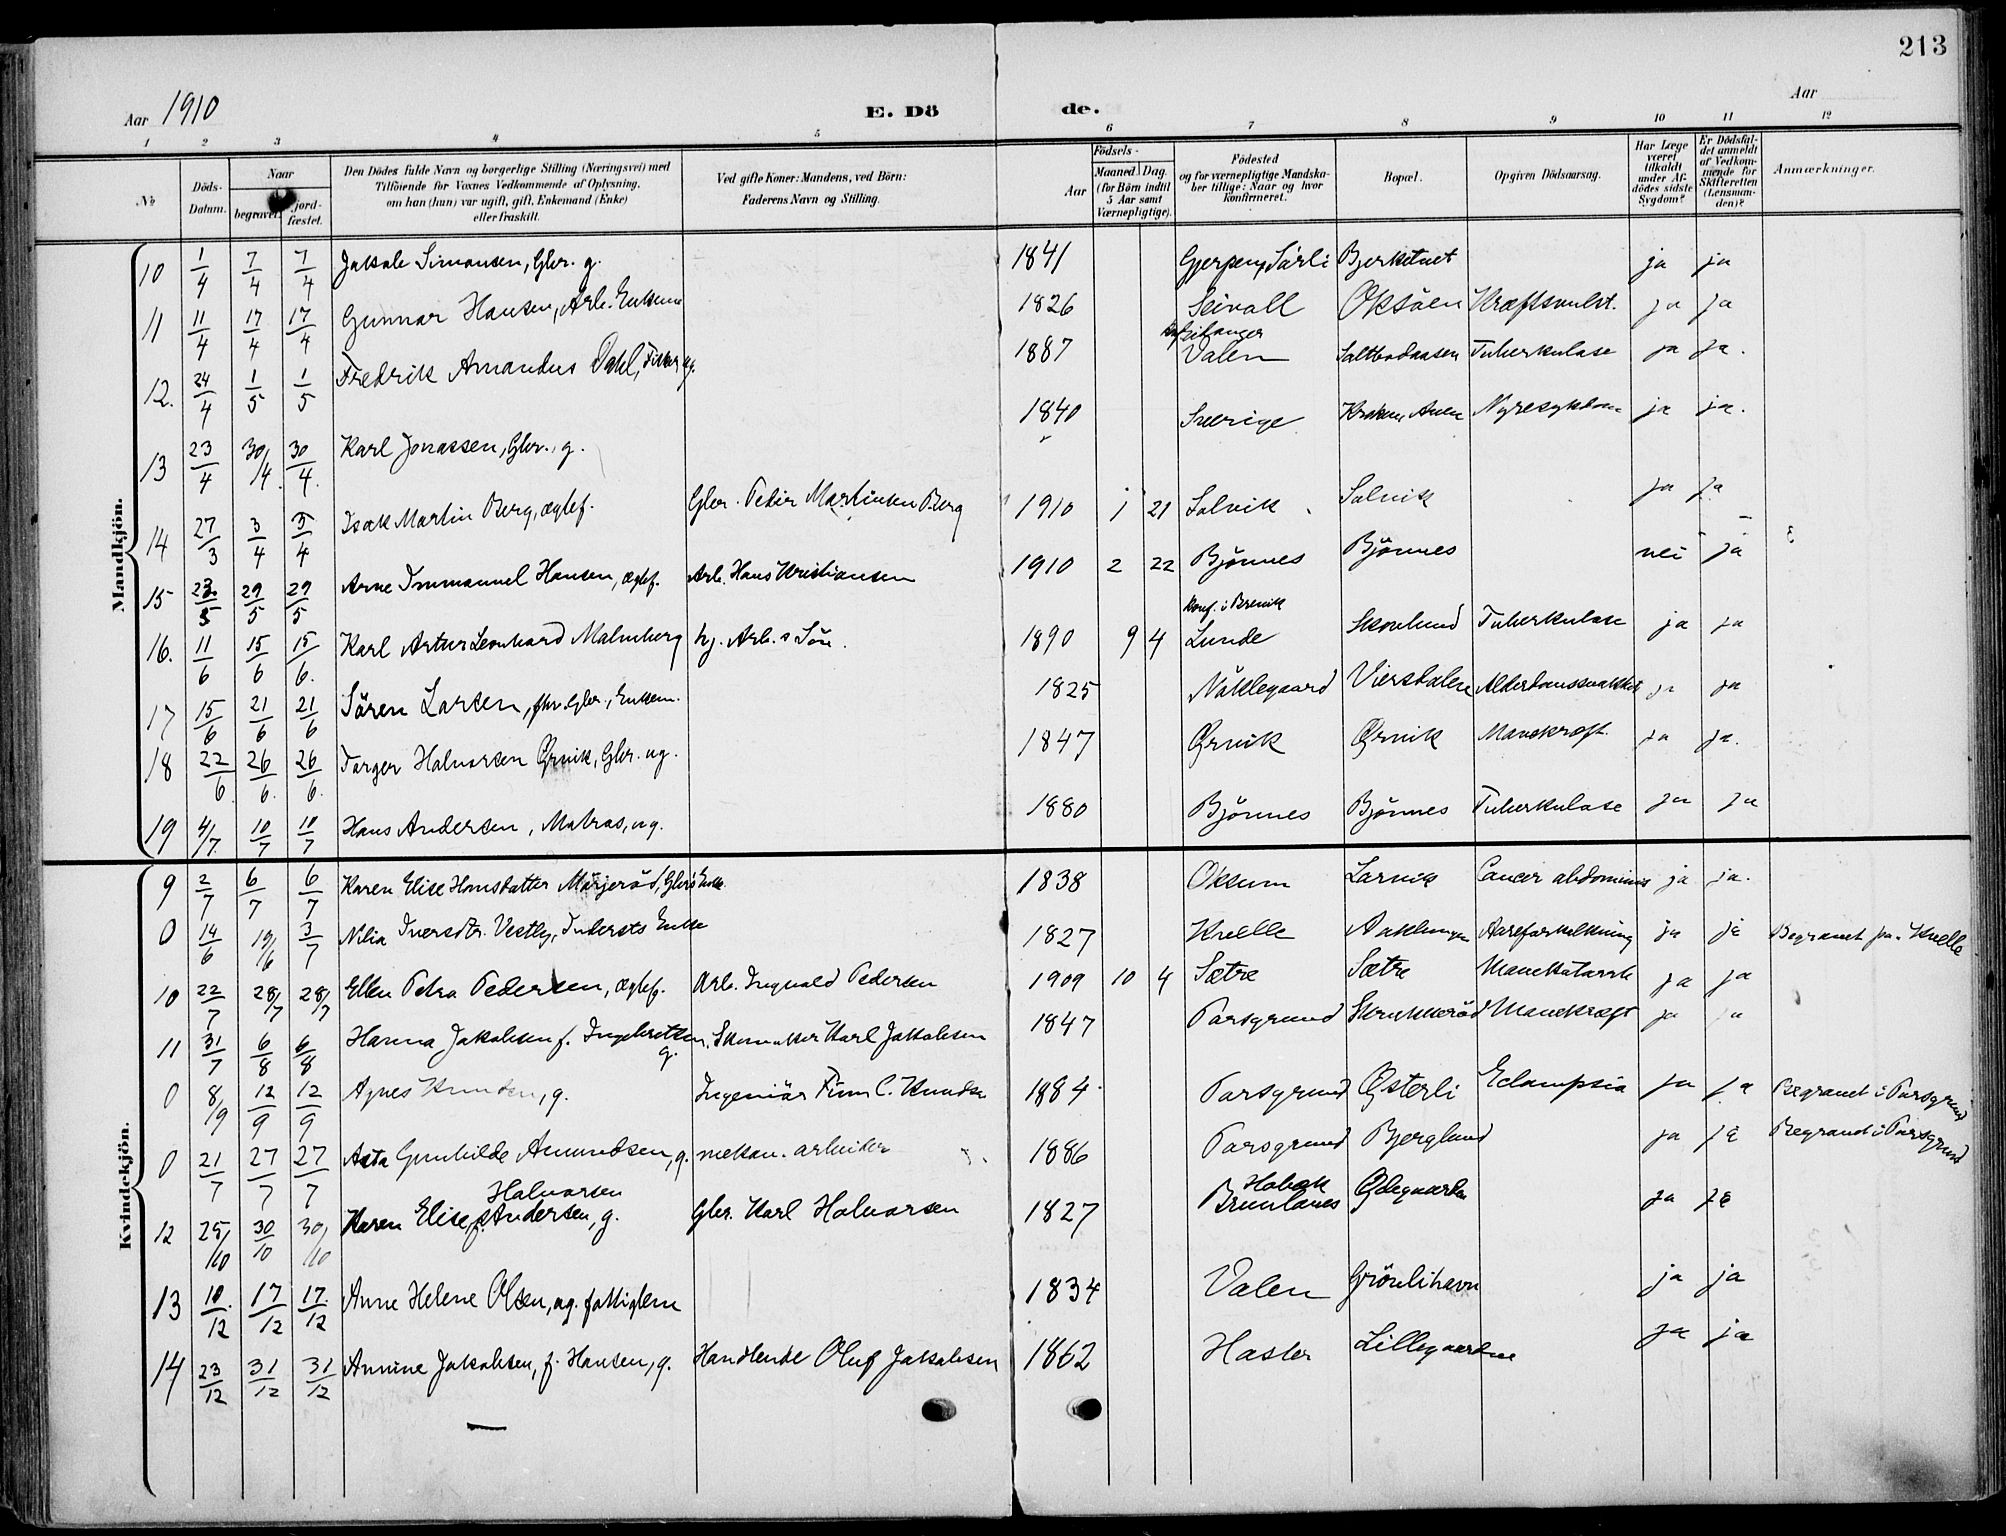 213
Aar 1910
E. Dö de.
Aar
1 2 3 4 5 6 7 8 9 10 11 12
No
Döds-Datum.
Naar
begravet.
jord-fæstet.
Den Dödes fulde Navn og borgerlige Stilling (Næringsvei) med
Tilföiende for Voxnes Vedkommende af Oplysning,
om han (hun) var ugift, gift, Enkemand (Enke)
eller fraskilt.
Ved gifte Koner: Mandens, ved Börn:
Faderens Navn og Stilling.
Födsels-
Aar
Maaned. Dag.
(for Börn indtil
5 Aar samt
Værnepligtige).
Födested
og for værnepligtige Mandska-
ber tillige: Naar og hvor
konfirmeret.
Bopæl.
Opgiven Dödsaarsag.
Har Læge
været
tilkaldt
under Af-
dödes sidste
Sygdom?
Er Dödsfal-
det anmeldt
af Vedkom-
mende for
Skifteretten
(Lensman-
den)?
Anmærkninger.
Mandkjön.
10 1/4 7/4 7/4 Jakob Simonsen, Gbr. g. 1841 Gjerpen, Bjerketvet ja ja
11 11/4 17/4 17/4 Gunnar Hansen, Arb. Enkem 1826 Oksöen Kræftsvulst. ja ja
12. 24/4 1/5 1/5 Fredrik Amandus Dahl, Fisker ug. 1887 Valen Saltbodaasen Tuberkulose ja ja.
13 23/4 30/4 30/4 Karl Jonassen, Gbr., g. 1840 Sverige Nyresygdom ja ja.
14 27/3 3/4 3/4 Isak Martin Berg, ægtef. Gbr. Peder Martinsen Berg 1910 1 21 Salvik Salvik ja ja
15 23/5 29/5 29/5 Arne Immanuel Hansen, ægtef. Arb. Hans Kristiansen 1910 2 22 Bjönnes Bjönnes nei ja
16. 11/6 15/6 15/6. Karl Artur Leonhard Malmberg Arb. s Sön. 1890 9 4 Konf. i Brevik Lunde Skovlund Tuberkulose ja ja
17 15/6 21/6 21/6 Sören Larsen, fhv. Gbr., Enkem. 1825 Nöklegaard Viersdalen Alderdomssvakhet ja ja
18 22/6. 26/6. 26/6. Torger Halvorsen Ørvik, Gbr. ug. 1847 Ørvik Ørvik Mavekræft. ja ja.
19 4/7. 10/7 10/7 Hans Andersen, Matros, ug. 1880 Bjönnes Bjönnes Tuberkulose ja ja
Kvindekjön.
9 2/7 6/7 6/7 Karen Elise Hansdatter Mörjeröd, Gbr's Enke 1838 Oksum Larvik Cancer abdominis ja ja.
0 14/6 19/6 3/7 Nilia Iversdtr. Vestby, Indersts Enke 1827 Kvelle Aaklungen Aareforkalkning ja ja Begravet paa Kvelle
10 22/7 28/7 28/7 Ellen Petra Pedersen, ægtef. Arb. Ingvald Pedersen 1909 10 4 Sætre Sætre Mavekatarrh ja ja
11 31/7 6/8 6/8 Hanna Jakobsen f. Ingebretsen, g. Skomaker Karl Jakobsen 1847 Porsgrund Skrukkeröd Mavekræft ja ja
0 8/9 12/9 12/9 Agnes Knudsen, g. Ingeniör Finn C. Knudsen 1884 Porsgrund Østerli Eclampsia ja ja Begravet i Porsgrund
0 21/7 27/7 27/7 Asta Gunhilde Amundsen, g. mekan. arbeider 1886 Porsgrund Bjerglund ja ja Begravet i Porsgrund
12 25/10 30/10 30/10 Karen Elise Halvorsen f. Andersen, g. Gbr. Karl Halvorsen 1827 Brunlanes Ødegaarden ja ja
13 10/12 17/12 17/12 Anne Helene Olsen, ug. fattiglem 1834 Valen Grönlihavn ja ja
14 23/12 31/12 31/12 Annine Jakobsen, f. Hansen, g. Handlende Oluf Jakobsen 1862 Hasler Lillegaarden ja ja